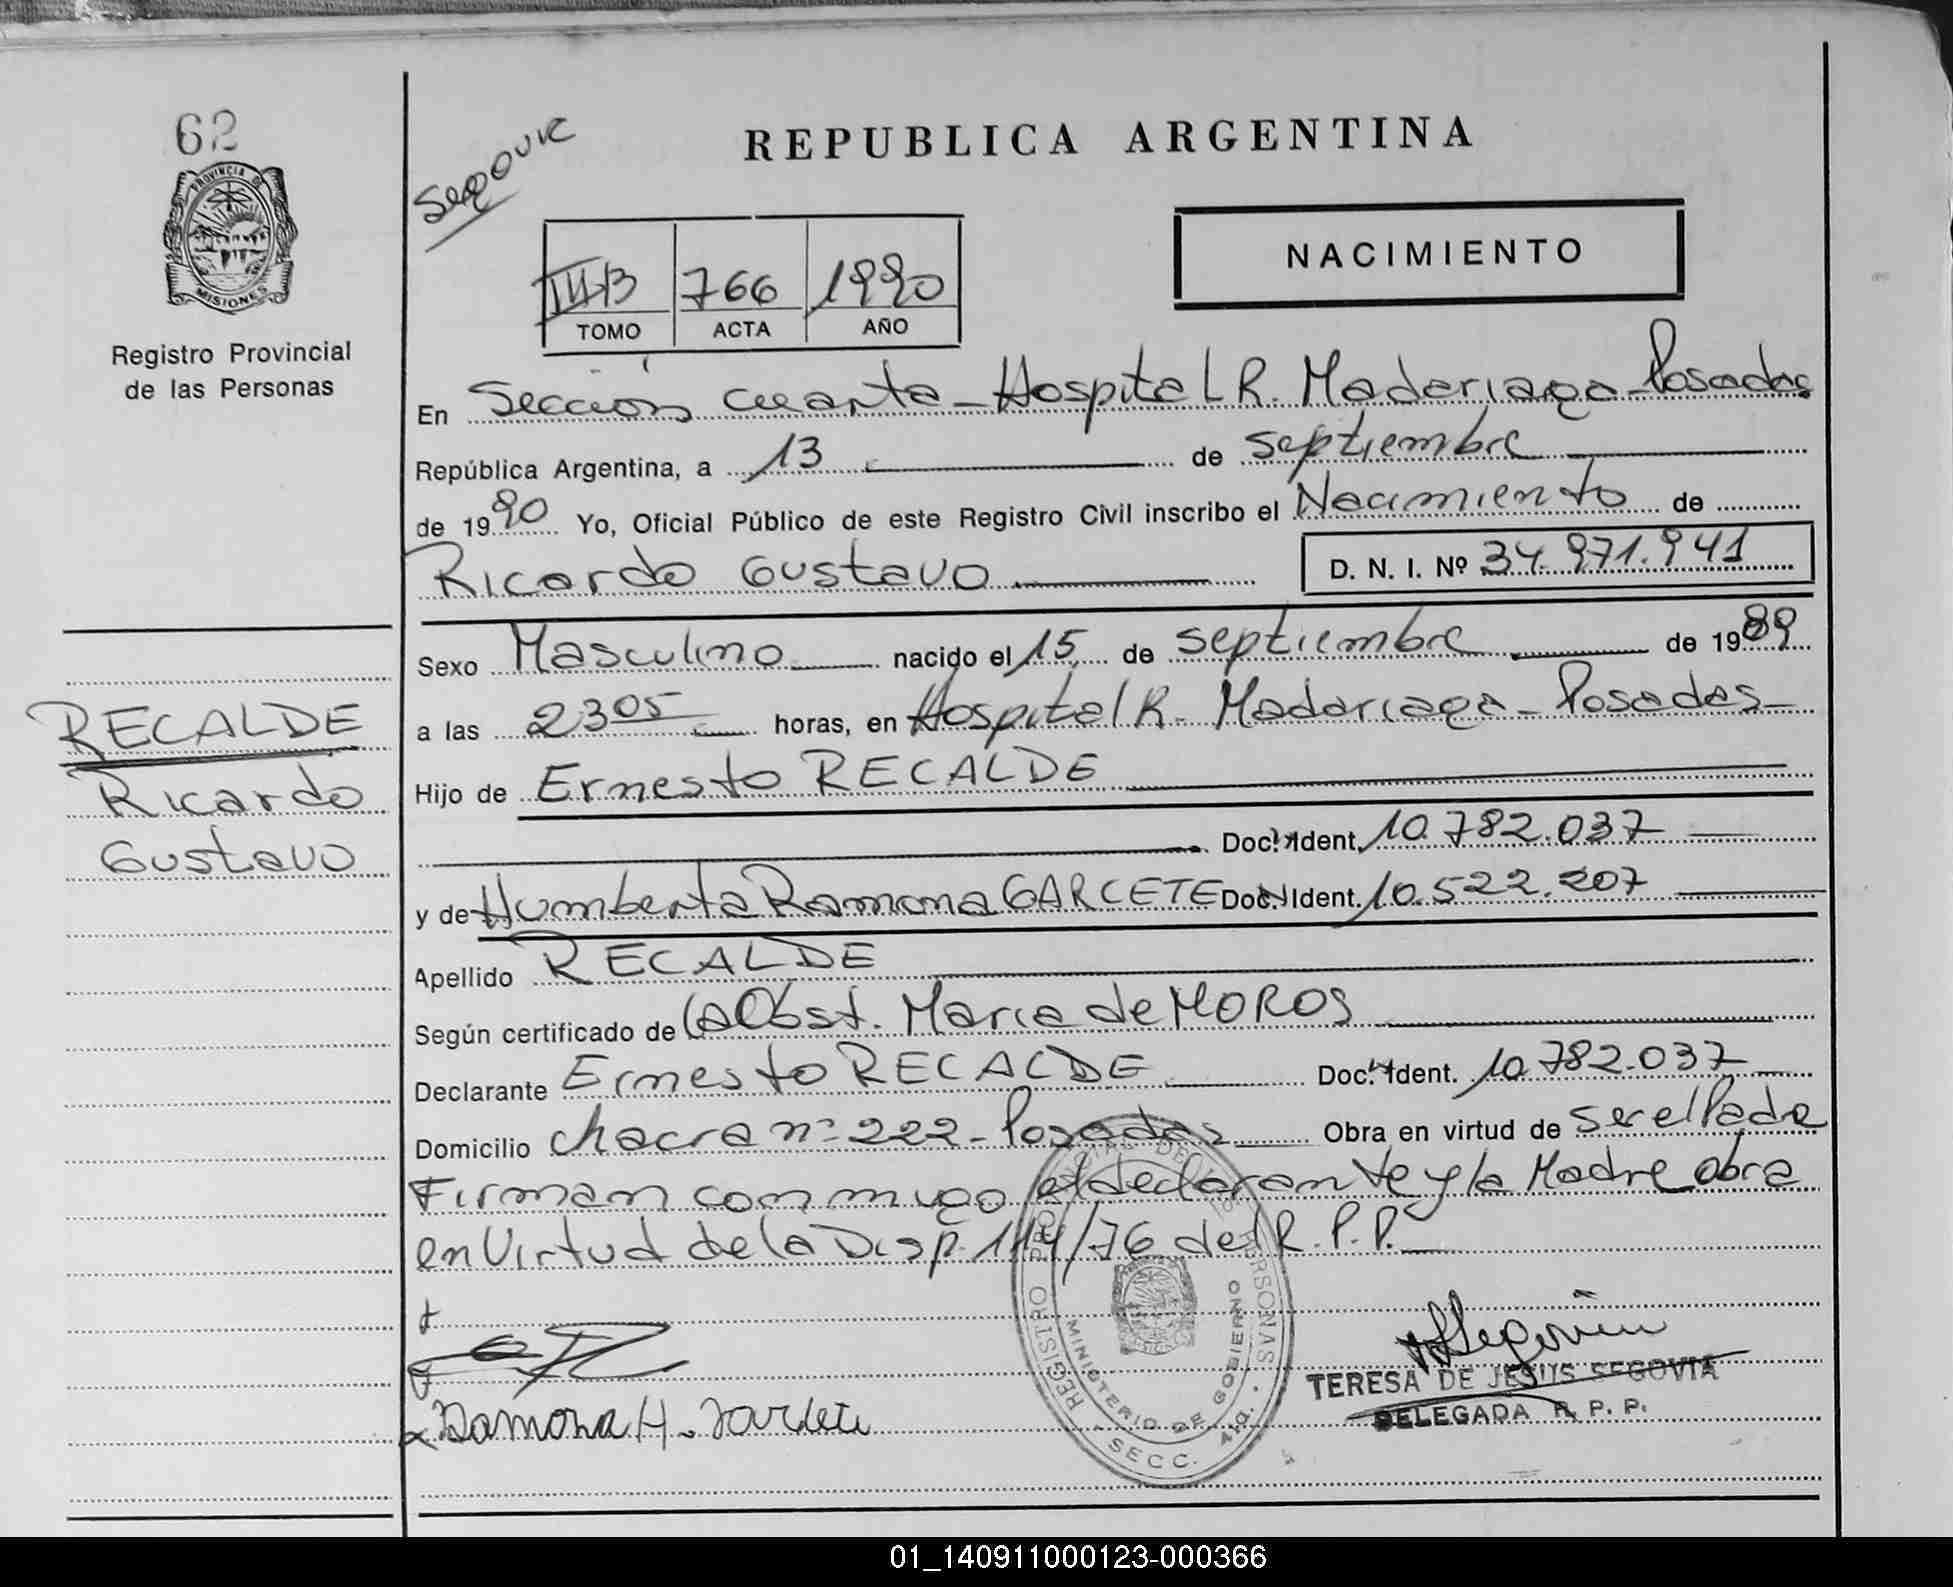 62
PROVINCIA DE
MISIONES
Registro Provincial
de las Personas
RECALDE
Ricardo
Gustavo
Segovia
REPUBLICA ARGENTINA
766 1990
TOMO ACTA AÑO
NACIMIENTO
En Sección cuarta - Hospital R. Madariaga - Posadas
República Argentina, a 13 de septiembre
de 1990 Yo, Oficial Público de este Registro Civil inscribo el Nacimiento de
Ricardo Gustavo D. N. I. Nº 34.971.941
Sexo Masculino nacido el 15 de septiembre de 1989
a las 2305 horas, en Hospital R. Madariaga - Posadas -
Hijo de Ernesto RECALDE
Doc. Ident. 10.782.037
y de Humberta Ramona GARCETE Doc. Ident. 10.522.207
Apellido RECALDE
Según certificado de la Obst. Maria de MOROS
Declarante Ernesto RECALDE Doc. Ident. 10.782.037
Domicilio Chacra nº 222 - Posadas Obra en virtud de ser el Padre
Firman conmigo el declarante y la Madre obra
en Virtud de la Disp. 114/76 del R.P.P.
REGISTRO PROVINCIAL DE LAS PERSONAS
MINISTERIO DE GOBIERNO
SECC. 4ta.
Ramona H. Garcete
TERESA DE JESUS SEGOVIA
DELEGADA R. P. P.
01_140911000123-000366